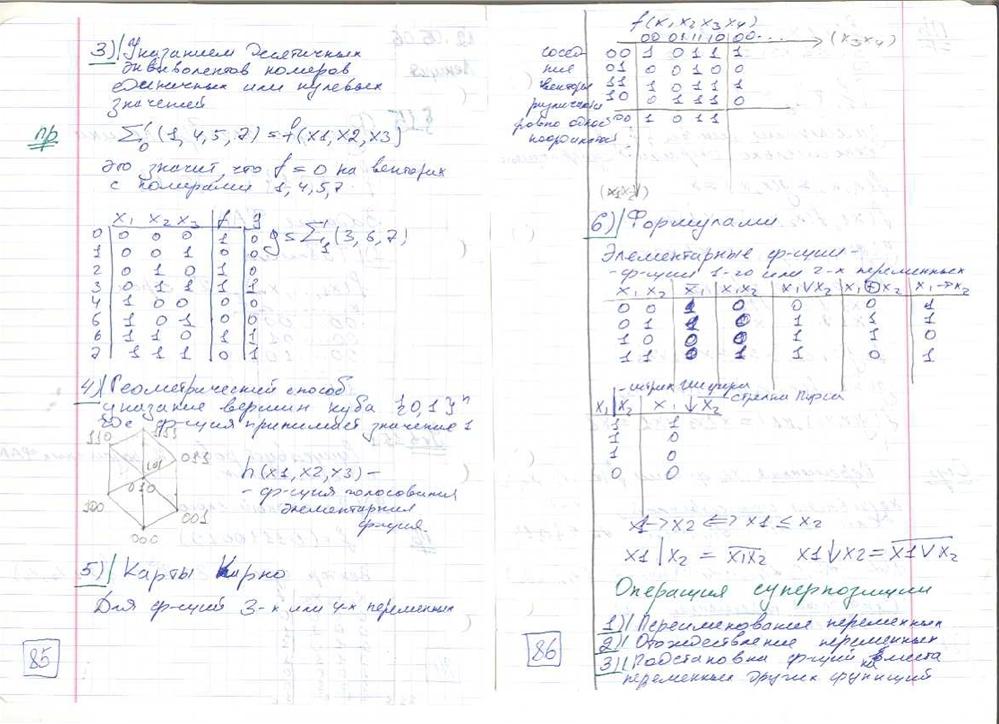 3) Указанием десятичных
эквивалентов номеров
единичных или нулевых
значений
пр
Σ'₀ (1,4,5,7) = f(x1,x2,x3)
Это значит, что f = 0 на векторах
с номерами 1,4,5,7
x₁ x₂ x₃ f g
0 0 0 0 1 0
1 0 0 1 0 0
2 0 1 0 1 0
3 0 1 1 1 1
4 1 0 0 0 0
6 1 0 1 0 0
6 1 1 0 1 1
7 1 1 1 0 1
g = Σ'₁ (3,6,7)
4) Геометрический способ
указание вершин куба {0,1}ⁿ
где ф-ция принимает значение 1
110 111
011
101
010
100
001
000
h(x1,x2,x3) –
- ф-ция голосования
элементарная
ф-ция.
5) Карты Карно
Для ф-ций 3-х или 4-х переменных
85
f(x₁x₂x₃x₄)
00 01 11 10 00... (x₃x₄)
сосед 00 1 0 1 1 1
ние 01 0 0 1 0 0
вектора 11 1 0 1 1 1
различием 10 0 1 1 1 0
равно одной 00 1 0 1 1
координате
(x₁x₂)
6) Формулами
Элементарные ф-ции -
- ф-ции 1-го или 2-х переменных
x₁ x₂ x̅₁ x₁x₂ x₁∨x₂ x₁⊕x₂ x₁→x₂
0 0 1 0 0 0 1
0 1 1 0 1 1 1
1 0 0 0 1 1 0
1 1 0 1 1 0 1
- штрих Шеффера
x₁|x₂ x₁↓x₂ стрелка Пирса
1 1
1 0
1 0
0 0
x1→x2 ⟺ x1 ≤ x2
x1 | x2 = x̅1̅x̅2̅ x1↓x2 = x̅1̅∨̅x̅2̅
Операция суперпозиции
1) Переименование переменных
2) Отождествление переменных
3) Подстановка ф-ций на вместа
переменных других функций
86